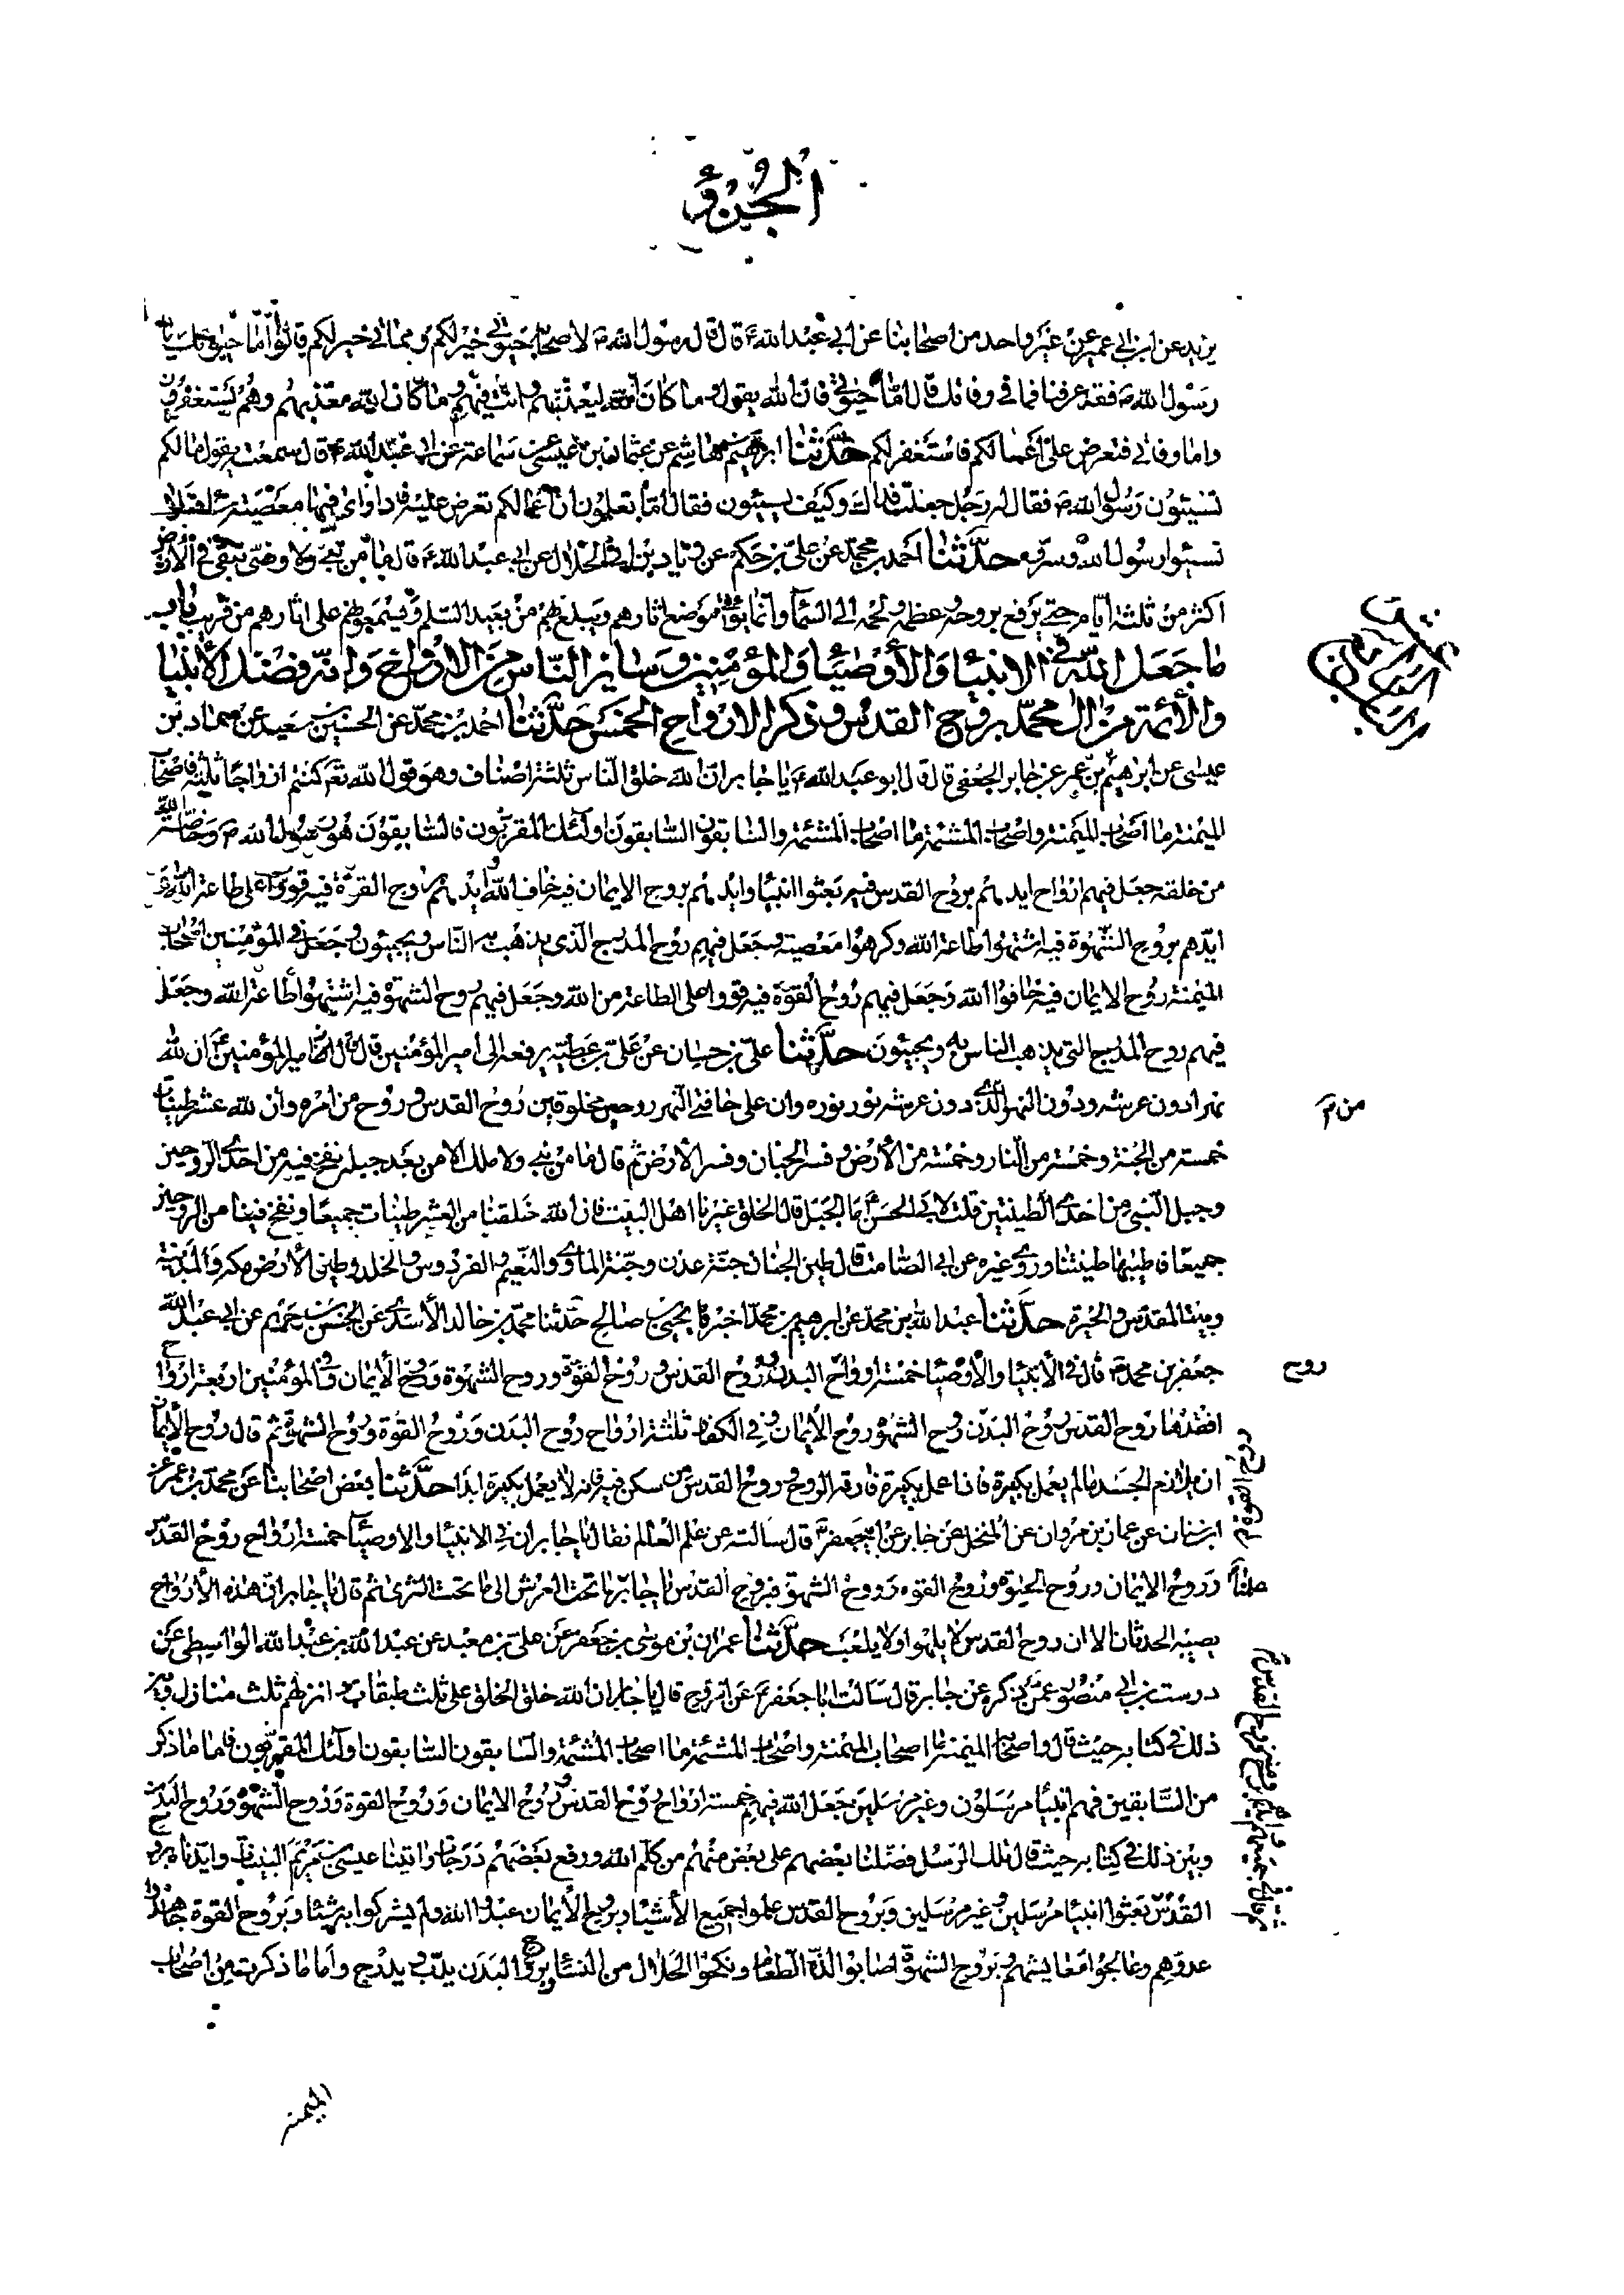 الجزؤ
يزيد عن ابن ابي عمير عن غير واحد من اصحابنا عن ابي عبد الله ع قال قال رسول الله ص لاصحابه حيوتي خير لكم ومماتي خير لكم قالوا اما حيوتك يا
رسول الله ص فقد عرفنا فما في وفاتك قال اما حيوتي فان الله يقول وما كان الله ليعذبهم وانت فيهم وما كان الله معذبهم وهم يستغفرون
واما وفاتي فتعرض علي اعمالكم فاستغفر لكم حدثنا ابرهيم بن هاشم عن عثمان بن عيسى عن سماعة عن ابي عبد الله ع قال سمعته يقول مالكم
تسيئون رسول الله ص فقال له رجل جعلت فداك وكيف نسيئون فقال اما تعلمون ان اعمالكم تعرض عليه فاذا راى فيها معصية الله ساءه فلا
تسيئوا رسول الله وسروه حدثنا احمد بن محمد عن علي بن حكم عن زياد بن ابي الحلال عن ابي عبد الله ع قال ما من نبي ولا وصي يبقى في الارض
اكثر من ثلثة ايام حتى يرفع بروحه وعظمه ولحمه الى السماء وانما يؤتى موضع اثارهم ويبلغ بهم من بعيد السلم ويسمعونهم على اثارهم من قريب باب
ما جعل الله في الانبيا والأوصيا والمؤمنين وسائر الناس من الارواح وانه فضل الأنبيا
والأئمة من ال محمد بروح القدس وذكر الارواح الخمس حدثنا احمد بن محمد عن الحسين بن سعيد عن حماد بن
عيسى عن ابرهيم بن عمر عن جابر الجعفي قال قال ابو عبد الله ع يا جابر ان الله خلق الناس ثلثة اصناف وهو قول الله تع وكنتم ازواجا ثلثة فاصحاب
الميمنة ما اصحاب الميمنة واصحاب المشئمة ما اصحاب المشئمة والسابقون السابقون اولئك المقربون فالسابقون هو رسول الله ص وخاصة الله
من خلقه جعل فيهم خمسة ارواح ايدهم بروح القدس فبه بعثوا انبيا وايدهم بروح الايمان فبه خافوا الله وايدهم بروح القوة فبه قووا على طاعة الله و
ايدهم بروح الشهوة فبه اشتهوا طاعة الله وكرهوا معصيته وجعل فيهم روح المدرج الذي يذهب به الناس ويجيئون وجعل في المؤمنين اصحاب
الميمنة روح الايمان فبه خافوا الله وجعل فيهم روح القوة فبه قووا على الطاعة من الله وجعل فيهم روح الشهوة فبه اشتهوا طاعة الله وجعل
فيهم روح المدرج التي يذهب الناس به ويجيئون حدثنا علي بن حسان عن علي بن عطية يرفعه الى امير المؤمنين قال قال امير المؤمنين ع ان لله
نهرا دون عرشه ودون النهر الذي دون عرشه نور نوره وان على حافتي النهر روحين مخلوقين روح القدس وروح من امره وان لله عشر طينات
خمسة من الجنة وخمسة من النار وخمسة من الأرض وفسر الجنان وفسر الأرض ثم قال ما من نبي ولا ملك الا من بعد جبله نفخ فيه من احدى الروحين
وجبل النبي من احدى الطينتين قلت لابي الحسن ع ما الجبل قال الخلق غيرنا اهل البيت فان الله خلقنا من العشر طينات جميعا ونفخ فينا من الروحين
جميعا فاطيبها طيبتنا وروى غيره عن ابي الصامت قال طين الجنان جنة عدن وجنة الماوى والنعيم والفردوس والخلد وطين الأرض مكة والمدينة
وبيت المقدس والحيرة حدثنا عبد الله بن محمد عن ابرهيم بن محمد اخبرنا يحيى بن صالح حدثنا محمد بن خالد الأسدي عن الحسن بن جهم عن ابي عبد الله
جعفر بن محمد ع قال في الأنبيا والأوصيا خمسة ارواح روح البدن وروح القدس وروح القوة وروح الشهوة وروح الأيمان وفي المؤمنين اربعة ارواح
افقدها روح القدس روح البدن وروح الشهوة وروح الأيمان وفي الكفار ثلثة ارواح روح البدن وروح القوة وروح الشهوة ثم قال روح الأيمان
يلازم الجسد ما لم يعمل بكبيرة فاذا عمل بكبيرة فارقه الروح وروح القدس من سكن فيه فانه لا يعمل بكبيرة ابدا حدثنا بعض اصحابنا عن محمد بن عمر عن
ابن سنان عن عمار بن مروان عن المنخل عن جابر عن ابي جعفر ع قال سالته عن علم العالم فقال يا جابر ان في الانبيا والاوصيا خمسة ارواح روح القدس
وروح الايمان وروح الحيوة وروح القوة وروح الشهوة فبروح القدس يا جابر علمنا ما تحت العرش الى ما تحت الثرى ثم قال يا جابر ان هذه الأرواح
يصيبه الحدثان الا ان روح القدس لا يلهو ولا يلعب حدثنا عمران بن موسى بن جعفر عن علي بن معبد عن عبد الله بن عبد الله الواسطي عن
درست بن ابي منصور عمن ذكره عن جابر قال سالت ابا جعفر ع عن الروح قال يا جابر ان الله خلق الخلق على ثلث طبقات وانزلهم ثلث منازل وبين
ذلك في كتابه حيث قال واصحاب الميمنة ما اصحاب الميمنة واصحاب المشئمة ما اصحاب المشئمة والسابقون السابقون اولئك المقربون فاما ما ذكر
من السابقين فهم انبيا مرسلون وغير مرسلين جعل الله فيهم خمسة ارواح روح القدس وروح الايمان وروح القوة وروح الشهوة وروح البدن
وبين ذلك في كتابه حيث قال تلك الرسل فضلنا بعضهم على بعض منهم من كلم الله ورفع بعضهم درجات واتينا عيسى بن مريم البينات وايدناه بروح
القدس بعثوا انبيا مرسلين وغير مرسلين وبروح القدس علموا جميع الأشياء وبروح الأيمان عبدوا الله ولم يشركوا به شيئا وبروح القوة جاهدوا
عدوهم وعالجوا معايشهم وبروح الشهوة اصابوا لذة الطعام ونكحوا الحلال من النساء وبروح البدن يدب ويدرج واما ما ذكرت من اصحاب
من م
روح
علمنا
الميمنة